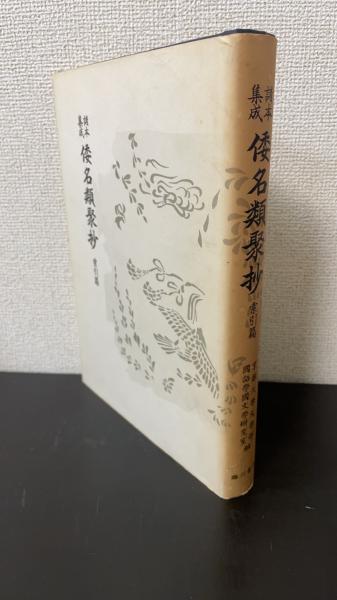 諸本
集成
倭名類聚抄
索引篇
諸本
集成
倭名類聚抄
索引篇
京都大學文學部
國語學國文學研究室
臨川